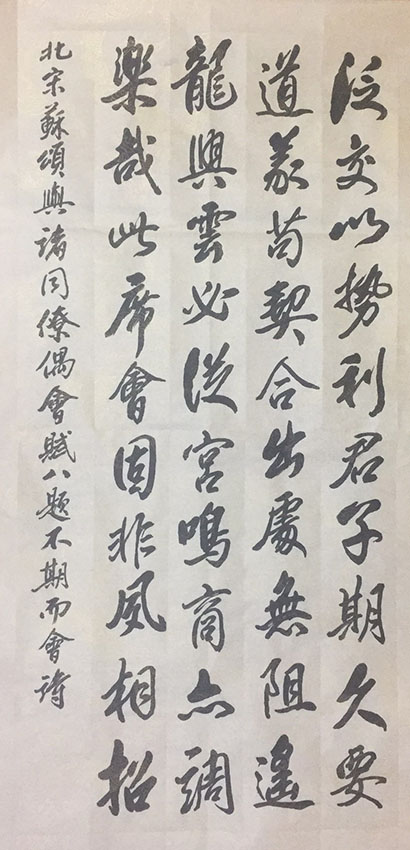 泛交以勢利君子期久要
道義苟契合出處無阻遙
龍興雲必從宮鳴商亦調
樂哉此席會固非夙相招
北宋蘇頌與諸同僚偶會賦八題不期而會詩